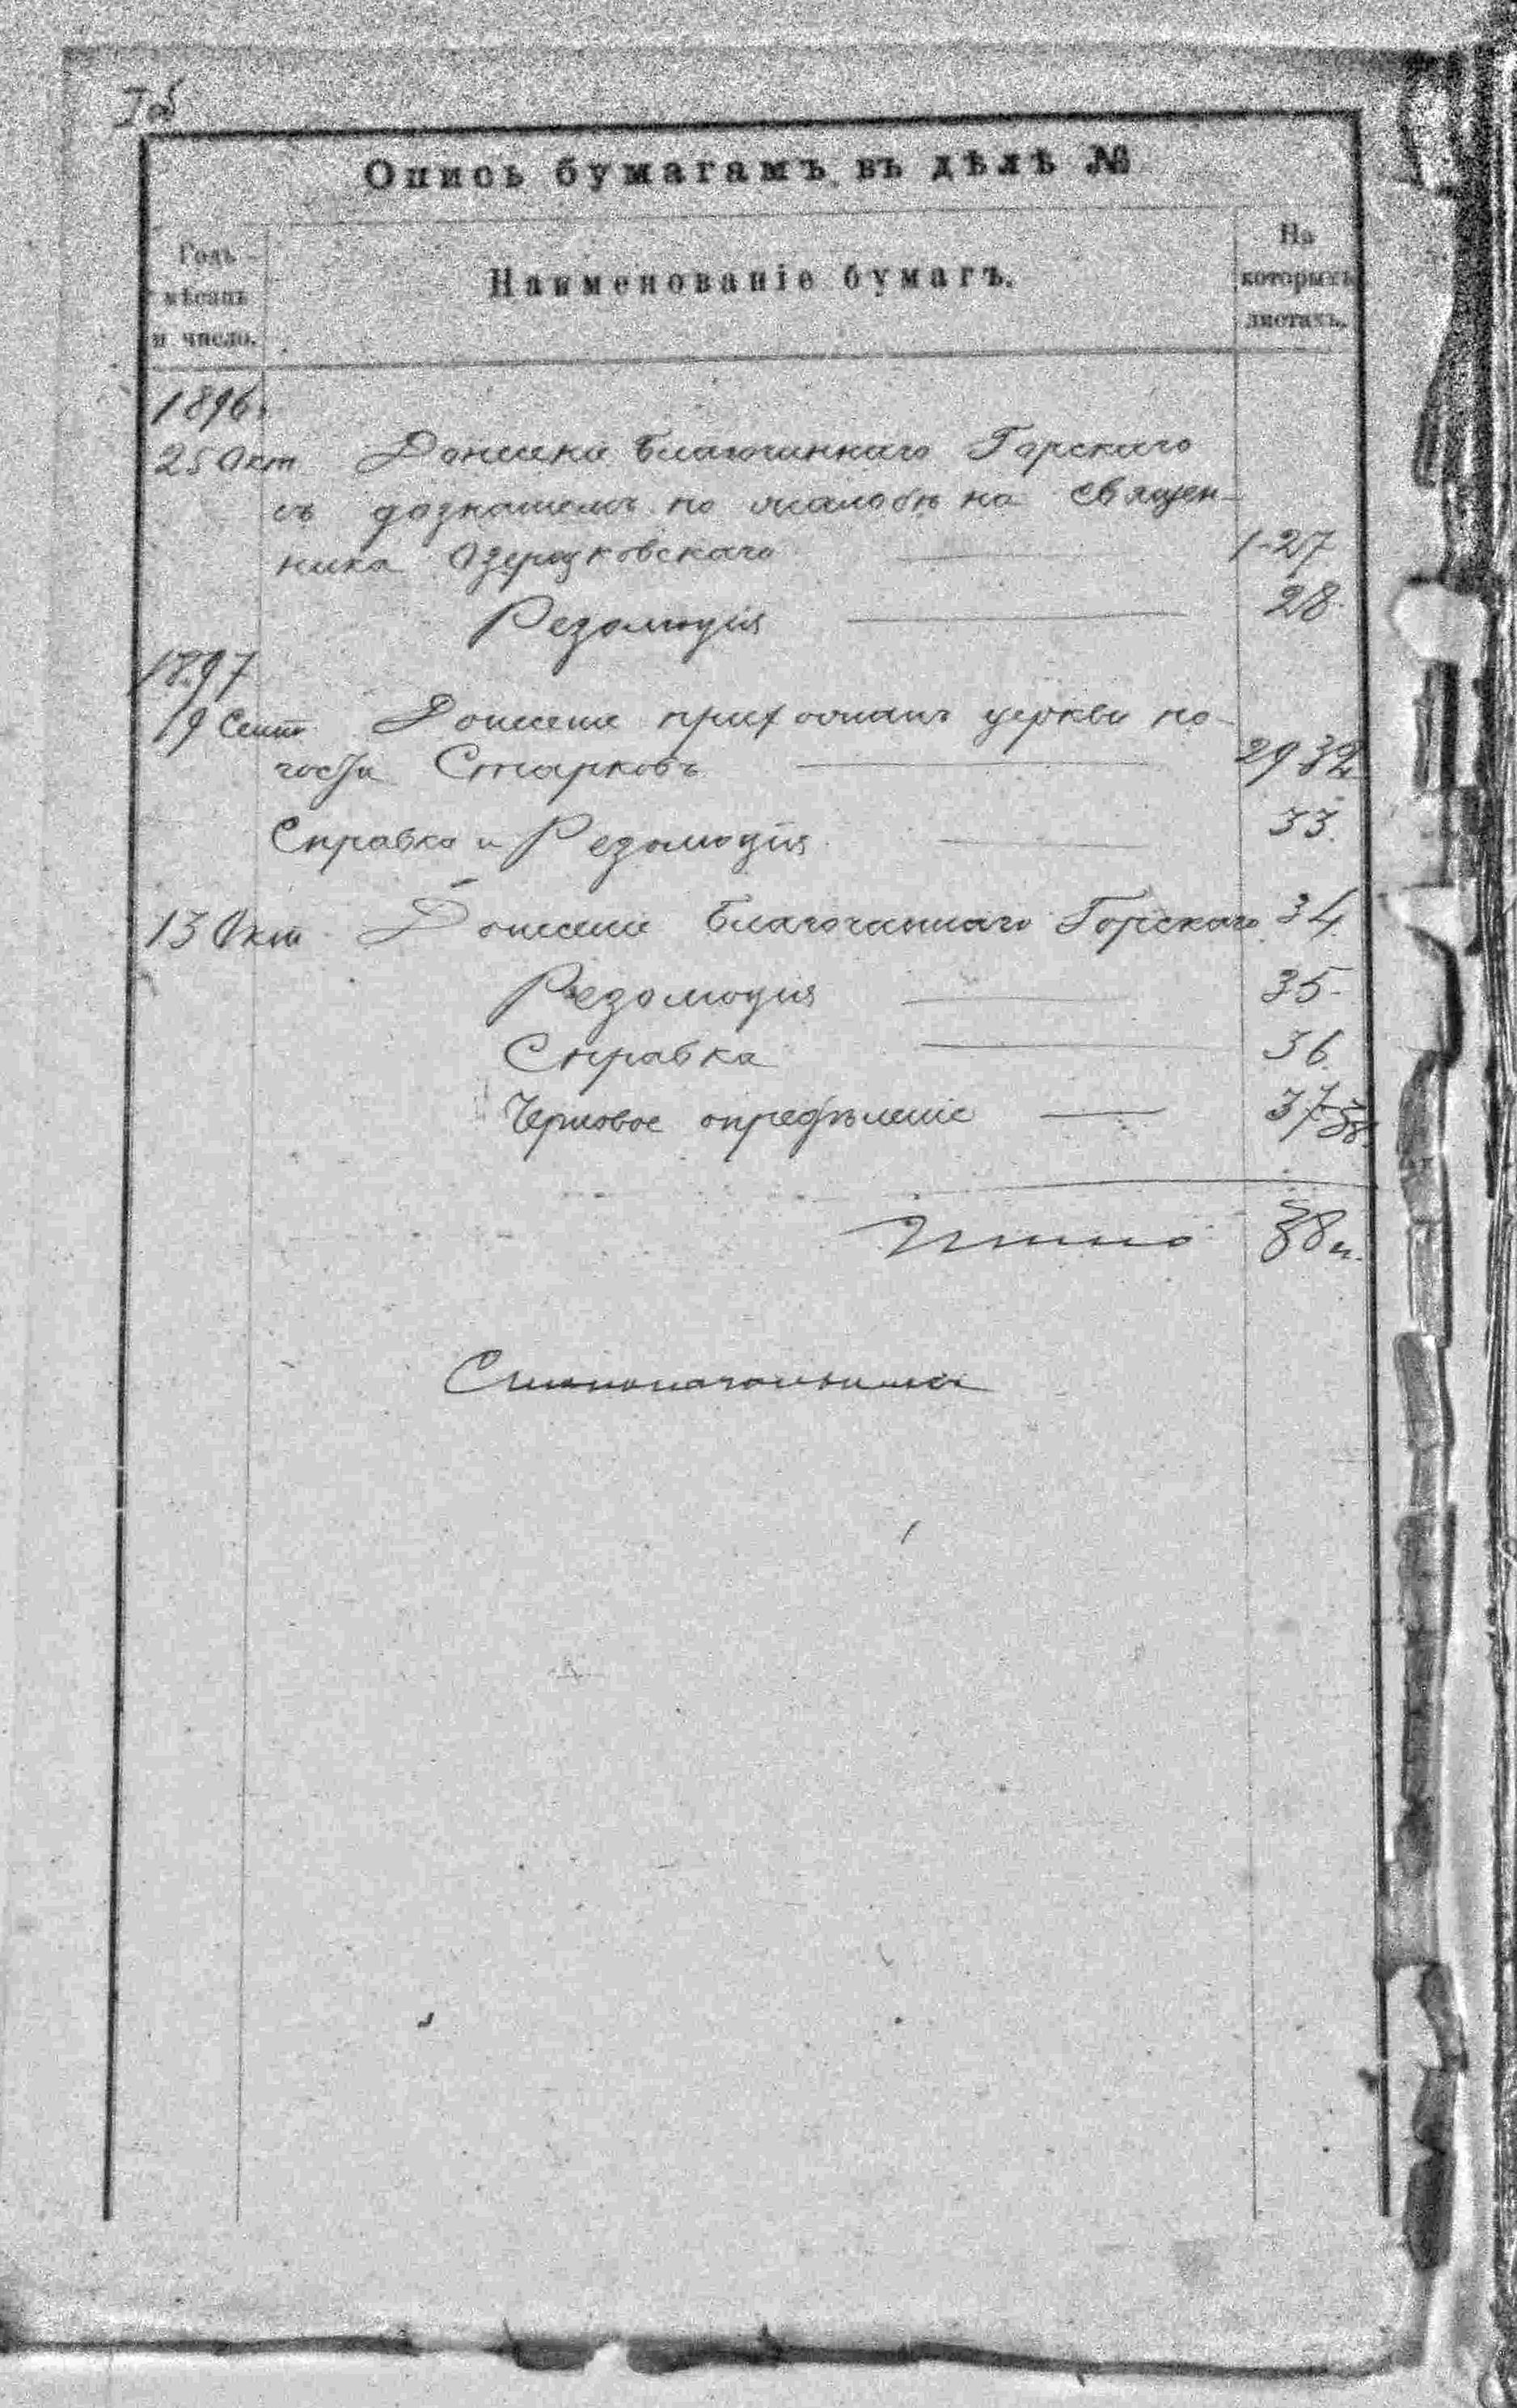 Опись бумагамъ въ дѣлѣ №
Годъ
мѣсяцъ
и число.
Наименованіе бумагъ.
На
которыхъ
листахъ.
1896
25 Окт Донесеніе Благочиннаго Горскаго
съ дознаніемъ по жалобѣ на Священ-
ника Озерецковскаго 1-27
Резолюція 28
1897
19 Сент Донесеніе прихожанъ церкви по-
госта Старковъ 29-32
Справка и Резолюція 33
13 Окт Донесеніе Благочиннаго Горскаго 34
Резолюція 35
Справка 36
Черновое опредѣленіе 37-38
Итого 38 л.
Столоначальникъ